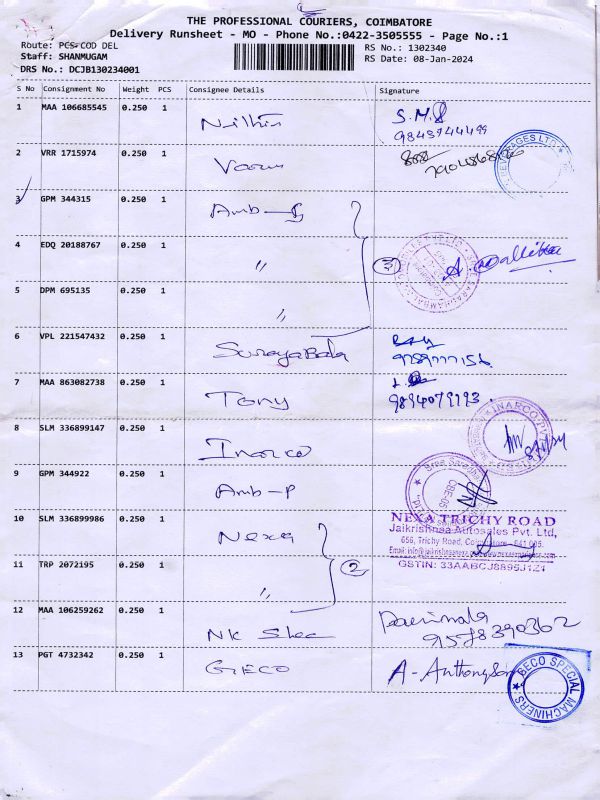 THE PROFESSIONAL COURIERS, COIMBATORE
Delivery Runsheet - MO - Phone No.:0422-3505555 - Page No.:1
Route: PCS-COD DEL
RS No.: 1302340
Staff: SHANMUGAM
RS Date: 08-Jan-2024
DRS No.: DCJB130234001
S No Consignment No Weight PCS Consignee Details Signature
1 MAA 106685545 0.250 1 Nithin S.M
9843944499
2 VRR 1715974 0.250 1
3 GPM 344315 0.250 1 Amb-P
4 EDQ 20188767 0.250 1 〃 3
5 DPM 695135 0.250 1 〃
6 VPL 221547432 0.250 1 SurayaBala
7 MAA 863082738 0.250 1 Tony
9894079193
8 SLM 336899147 0.250 1 Inarco
INARCO PVT
9 GPM 344922 0.250 1 Amb-P
10 SLM 336899986 0.250 1 Nexa
NEXA TRICHY ROAD
Jaikrishnaa Autosales Pvt. Ltd,
656, Trichy Road, Coimbatore - 641 005.
11 TRP 2072195 0.250 1 〃 2
12 MAA 106259262 0.250 1 NK Shee Parimala
9578390302
13 PGT 4732342 0.250 1 GECO A-Anthony
GECO SPECIAL MACHINERS